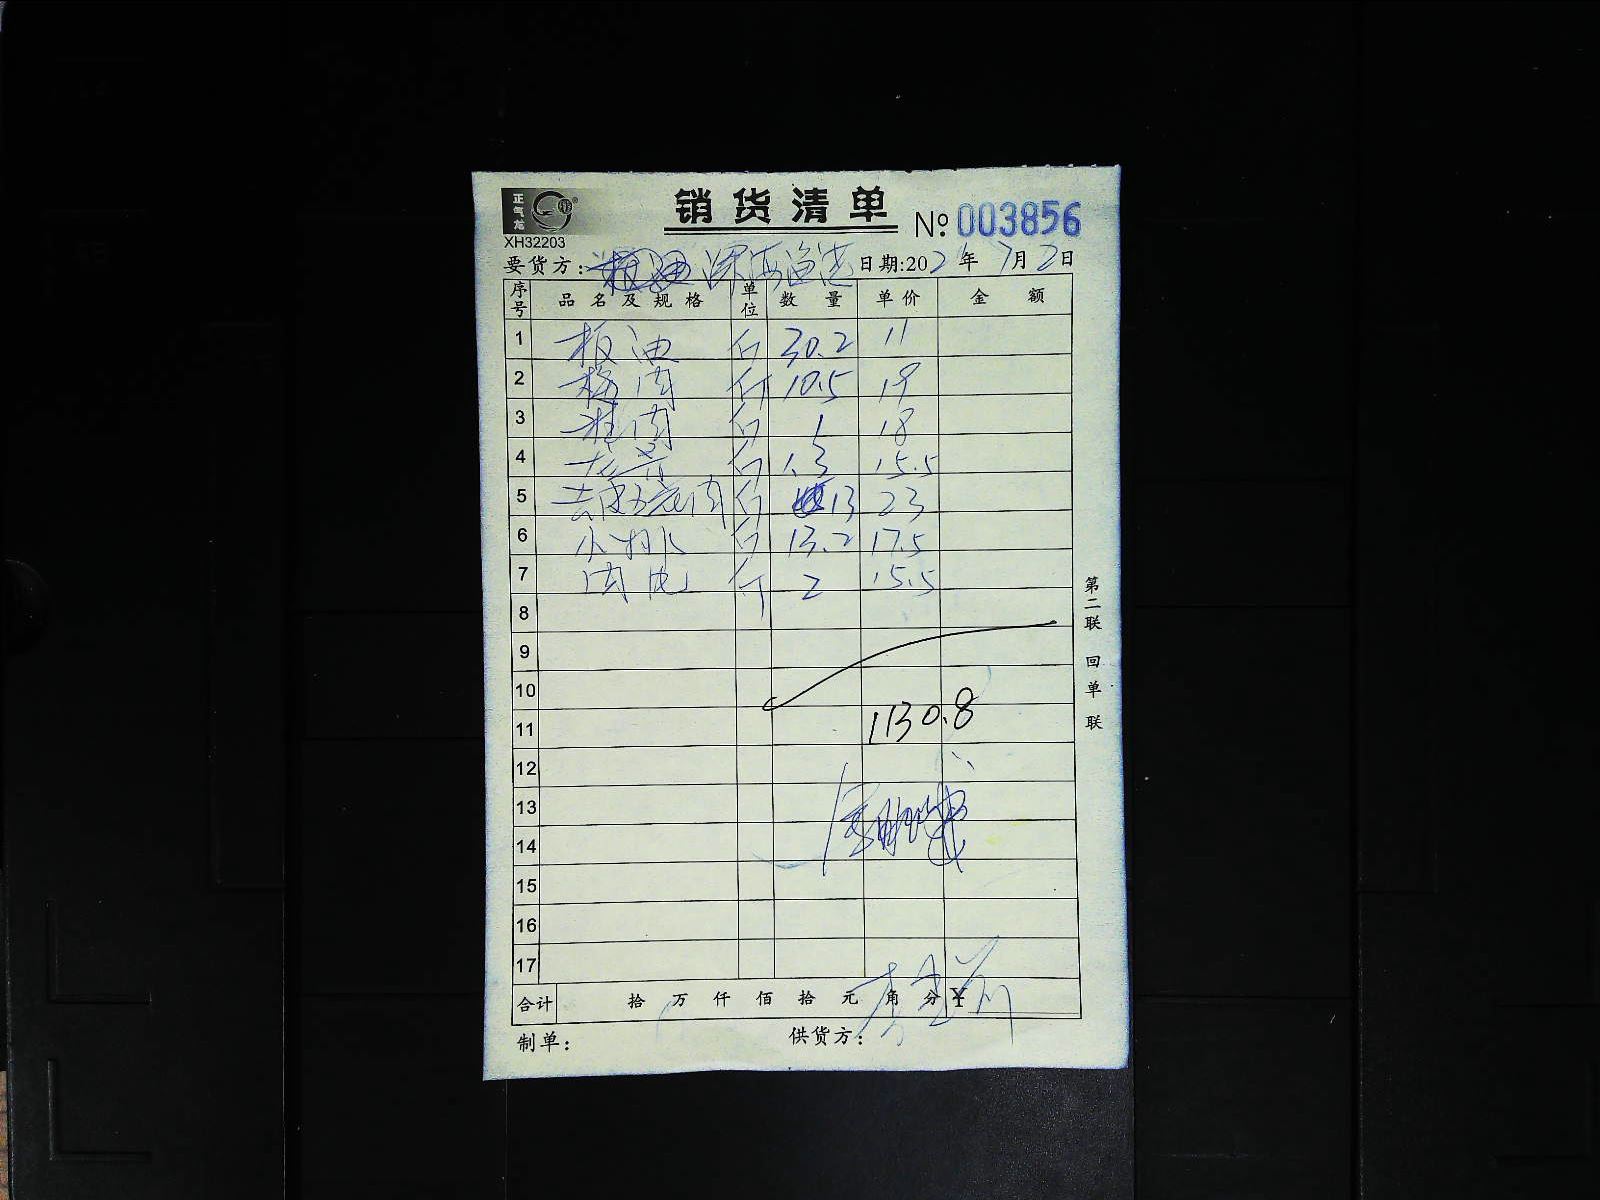 正气龙
销货清单
XH32203
№ 003856
要货方: 深海渔港 日期:202 年 7月2日
序号 品名及规格 单位 数量 单价 金额
1 板油 斤 30.2 11
2 梅肉 斤 10.5 19
3 肉 斤 18
4 斤 1.3 15.5
5 去皮五花肉 斤 13 23
6 小排 斤 13.2 17.5
7 肉 斤 2 15.5
8
9
10
11 1130.8
12
13
14
15
16
17
合计 拾 万 仟 佰 拾 元 角 分 ¥
制单: 供货方:
第二联 回单联